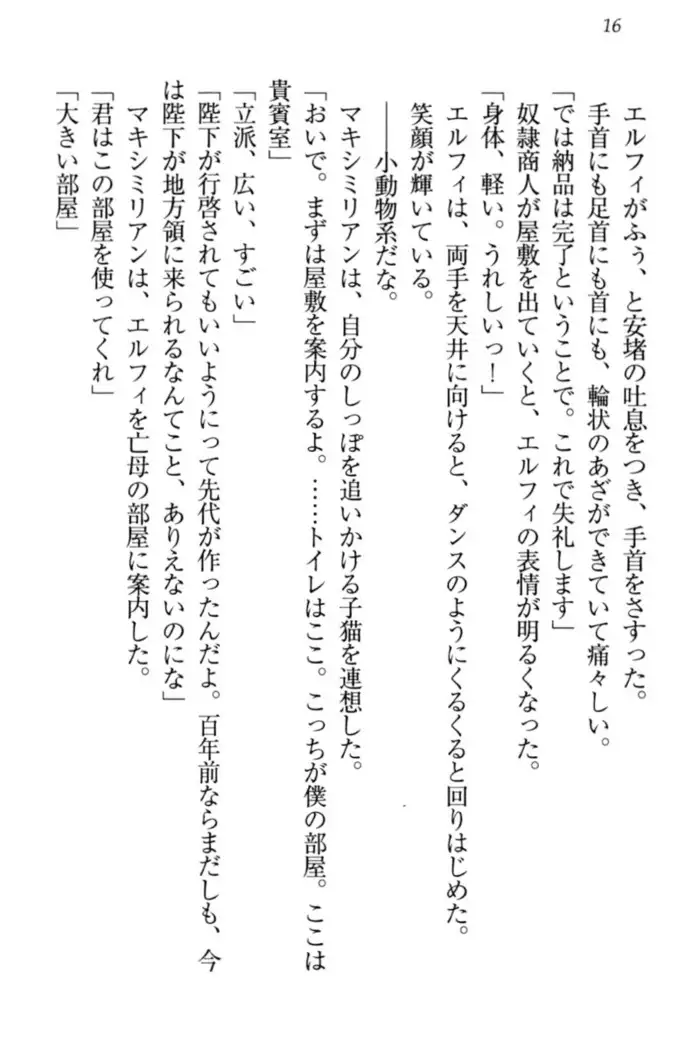 16
エルフィがふぅ、と安堵の吐息をつき、手首をさすった。
手首にも足首にも首にも、輪状のあざができていて痛々しい。
「では納品は完了ということで。これで失礼します」
奴隷商人が屋敷を出ていくと、エルフィの表情が明るくなった。
「身体、軽い。うれしいっ！」
エルフィは、両手を天井に向けると、ダンスのようにくるくると回りはじめた。
笑顔が輝いている。
――小動物系だな。
マキシミリアンは、自分のしっぽを追いかける子猫を連想した。
「おいで。まずは屋敷を案内するよ。……トイレはここ。こっちが僕の部屋。ここは
貴賓室」
「立派、広い、すごい」
「陛下が行啓されてもいいようにって先代が作ったんだよ。百年前ならまだしも、今
は陛下が地方領に来られるなんてこと、ありえないのにな」
マキシミリアンは、エルフィを亡母の部屋に案内した。
「君はこの部屋を使ってくれ」
「大きい部屋」